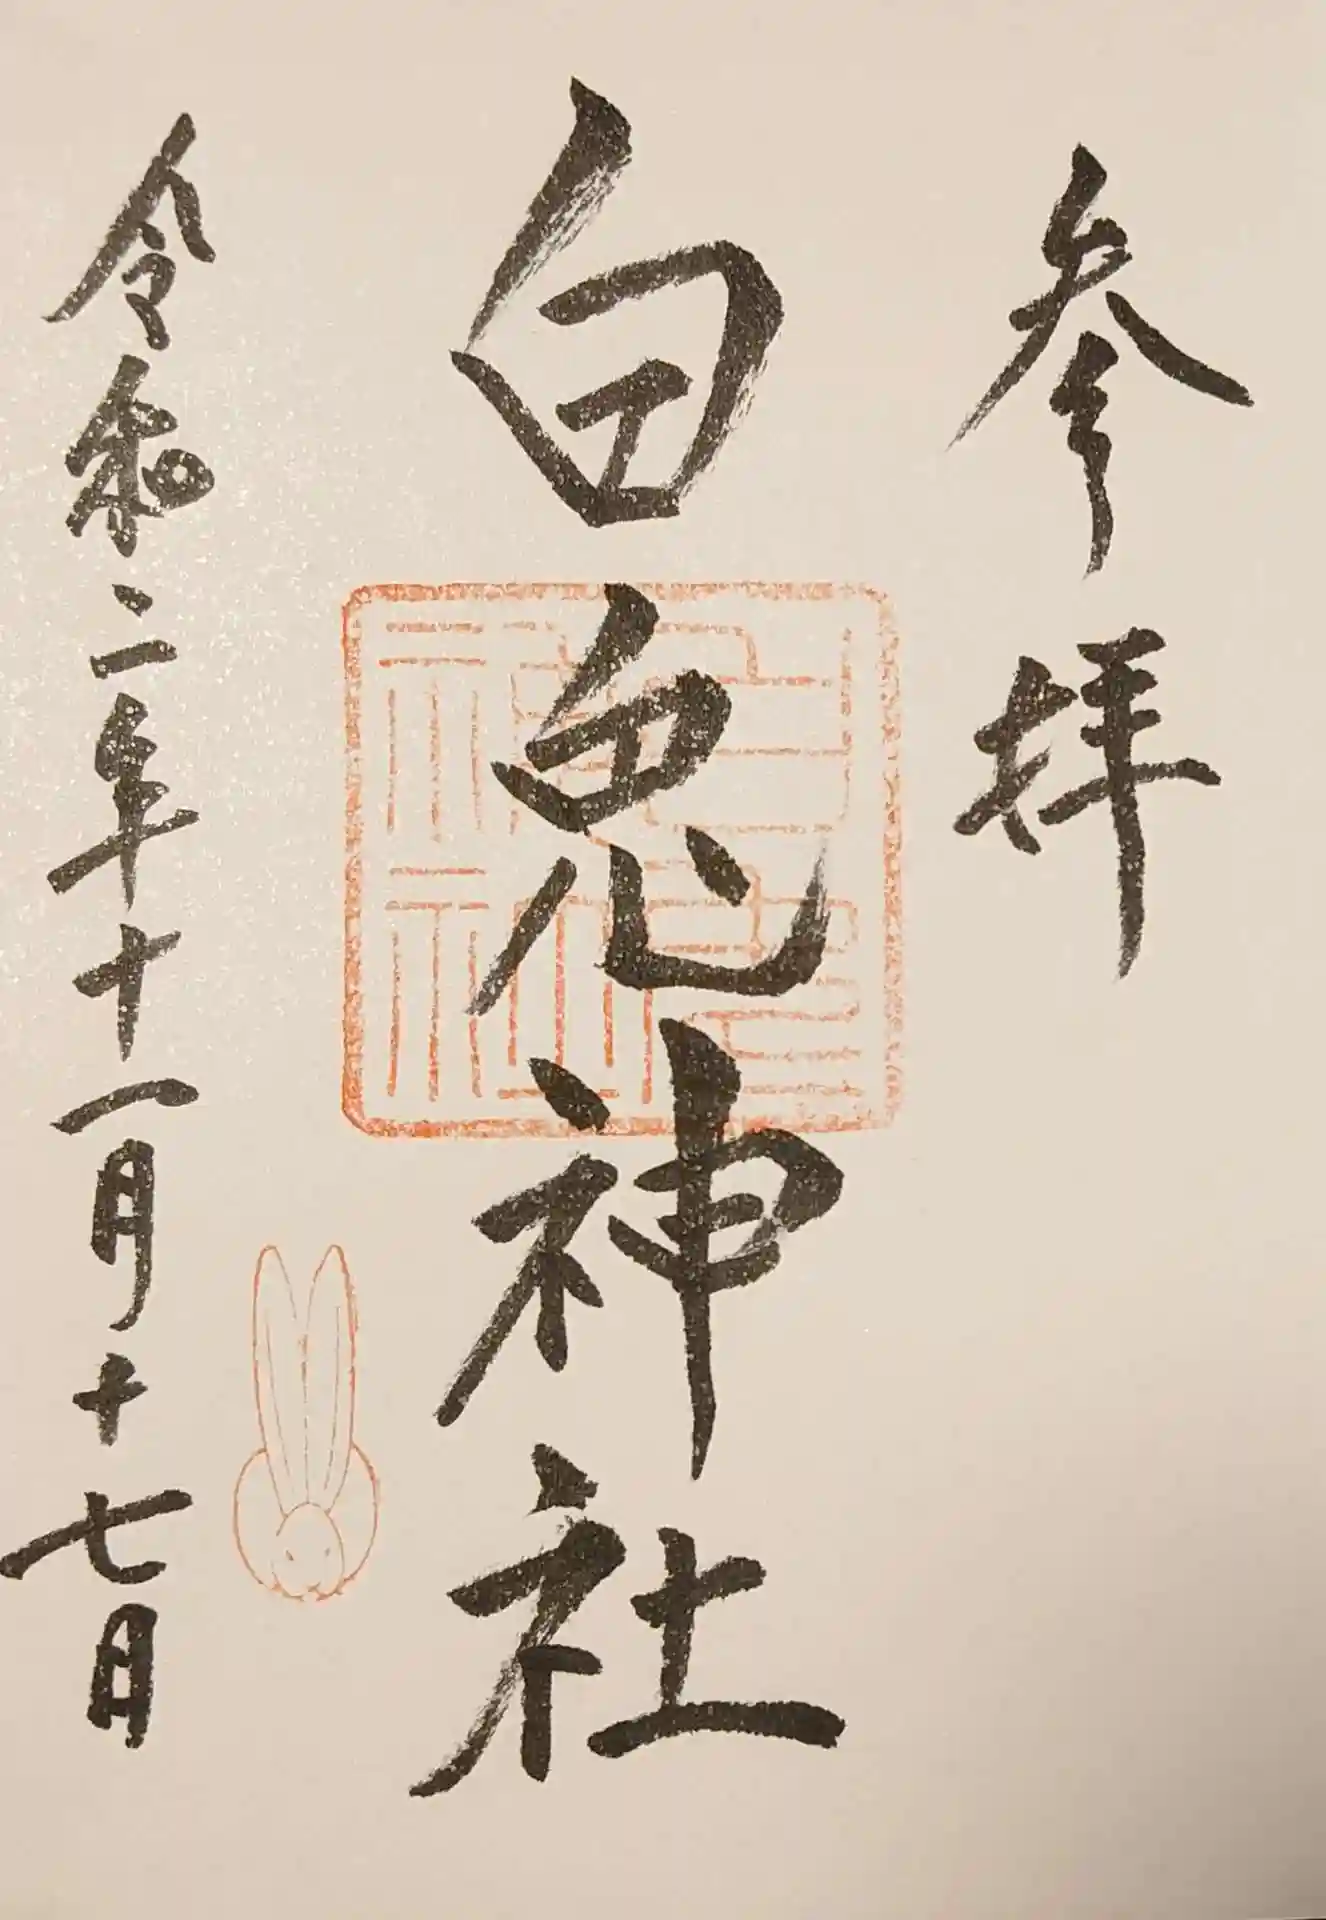 参拝
白兎神社
令和二年十一月十七日